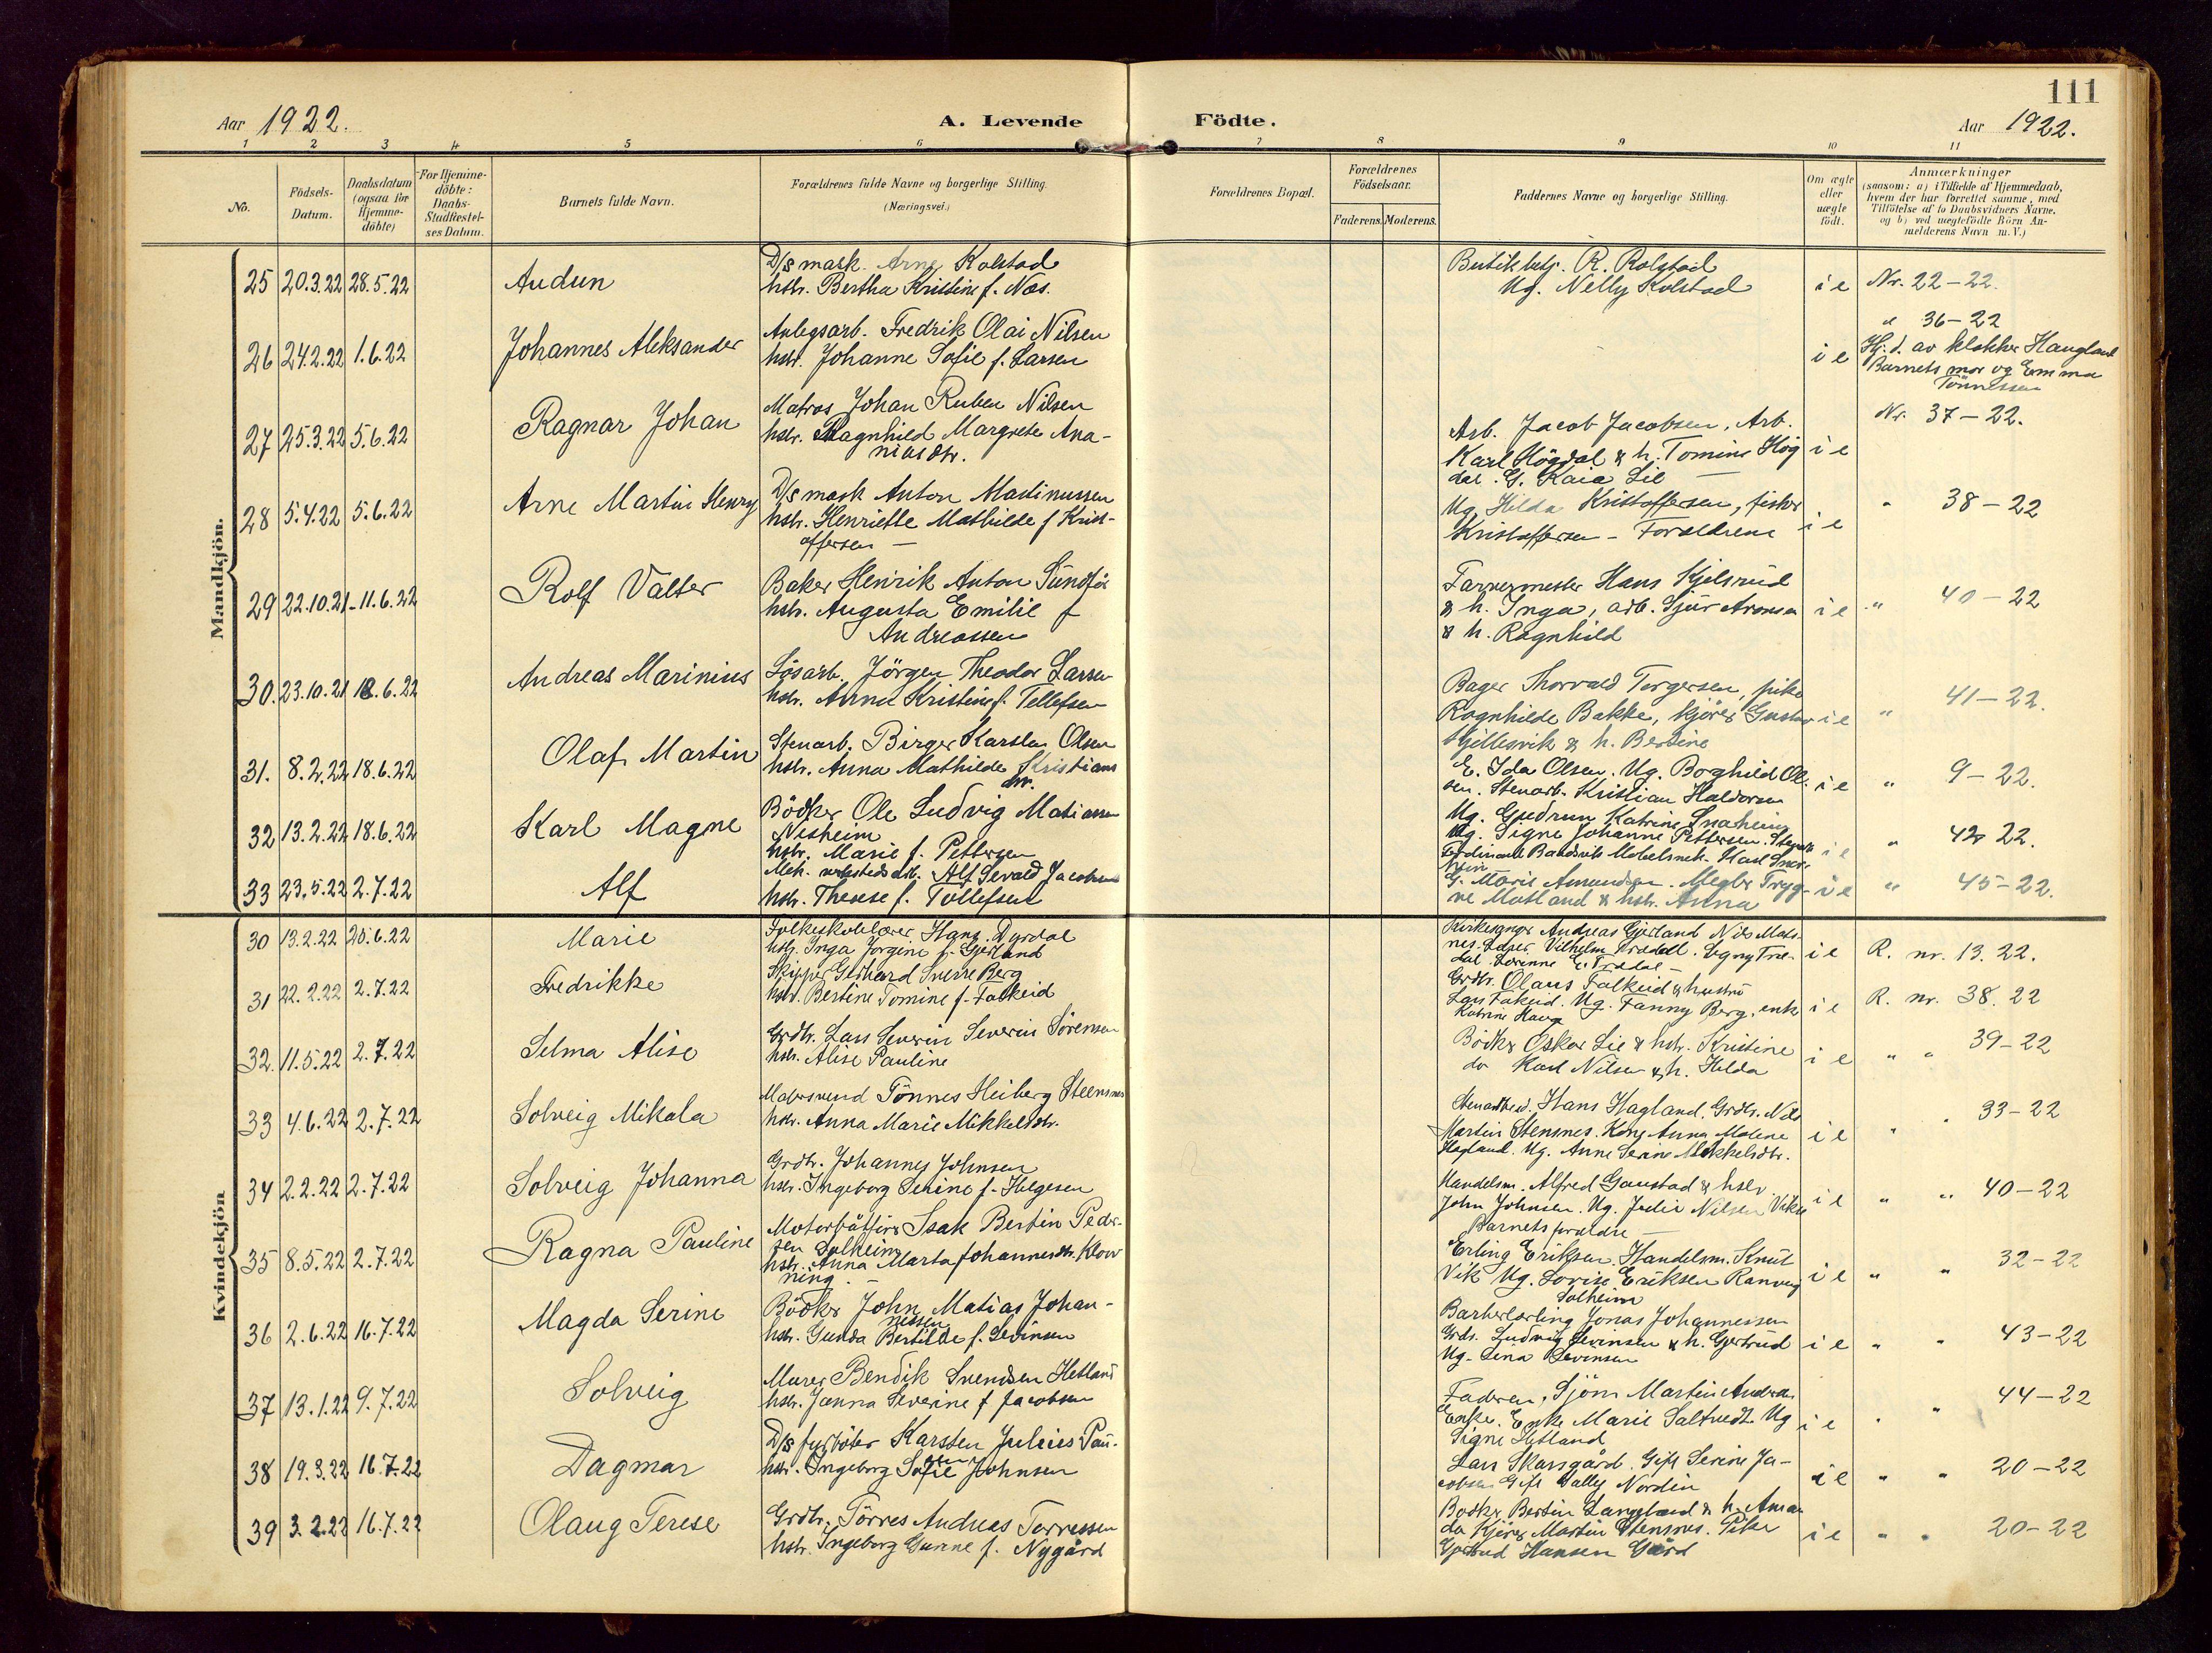 111
Aar 1922.
A. Levende Födte.
Aar 1922.
1 2 3 4 5 6 7 8 9 10 11
No.
Födsels-
Datum.
Daabsdatum
(ogsaa for
Hjemme-
döbte)
For Hjemme-
döbte:
Daabs-
Stadfæstel-
ses Datum.
Barnets fulde Navn.
Forældrenes fulde Navne og borgerlige Stilling.
(Næringsvei.)
Forældrenes Bopæl.
Forældrenes
Födselsaar.
Faderens. Moderens.
Faddernes Navne og borgerlige Stilling.
Om ægte
eller
uægte
födt.
Anmærkninger
(saasom: a) i Tilfælde af Hjemmedaab,
hvem der har forrettet samme, med
Tilföielse af to Daabsvidners Navne.
og b) ved uægtefödte Börn An-
melderens Navn m. V.)
Mandkjön.
25 20.3.22 28.5.22 Audun
D/s mask. Arne Kolstad
hstr. Bertha Kristine f. Næs.
Butikbetj. R. Rolstad
Ug. Nelly Kolstad
i e Nr. 22-22.
26 24.2.22 1.6.22 Johannes Aleksander
Anlegsarb. Fredrik Olai Nilsen
hstr. Johanne Sofie f. Larsen
i e
" 36-22
Hj. d. av klokker Haugland
Barnets mor og Emma
Tönnessen
27 25.3.22 5.6.22 Ragnar Johan
Matros Johan Ruben Nilsen
hstr. Ragnhild Margrete Ana-
niasdtr.
Arb. Jacob Jacobsen, Arb.
Karl Högdal & h. Tomine Hög
dal. G. Kaia Lie
i e Nr. 37-22.
28 5.4.22 5.6.22 Arne Martin Henry
D/s mask Anton Martinussen
hstr. Henriette Mathilde f Krist-
offersen
Ug. Hilda Kristoffersen, fisker
Kristoffersen - Forældrene
i e " 38-22
29 22.10.21 11.6.22 Rolf Valter
Baker Henrik Anton Sundför
hstr. Augusta Emilie f
Andreassen
Farvermester Hans Kjelsrud
& h. Inga, arb. Sjur Aronsen
& h. Ragnhild
i e " 40-22
30. 23.10.21 18.6.22 Andreas Marinius
Lösarb. Jörgen Theodor Larsen
hstr. Anna Kristine f. Tellefsen
Bager Thorvald Torgersen, pike
Ragnhilde Bakke, kjörer Gustav
Hjillesvik & h. Bertine
i e " 41-22.
31. 8.2.22 18.6.22 Olaf Martin
Stenarb. Birger Karsten Olsen
hstr. Anna Mathilde Kristians
dtr.
E. Ida Olsen. Ug. Borghild Ol-
sen. Stenarb. Kristian Haldorsen
i e " 9-22.
32 13.2.22 18.6.22 Karl Magne
Bödker Ole Ludvig Matiassen
Nesheim
hstr. Marie f. Pettersen
Ug. Gudrun Katrine Snaheim
Ug. Signe Johanne Pettersen.
Ferdinand Baadsvik Møbelsnek. Karl
i e " 42 22.
33 23.5.22 2.7.22 Alf
Mek. verkstedsarb. Alf Sevald Jacobsen
hstr. Therese f. Tollefsen
G. Marie Amundsen. Megler Tryg-
ve Matland & hstr. Anna
i e " 45-22.
Kvindekjön
30 13.2.22 25.6.22 Marie
Folkeskolelærer Hans Dyrdal
hstr. Inga Jorgine f. Gjerland
Kirkesanger Andreas Gjerland Nils Mats-
nes. Vilhelm Trædal. Signy Træ-
dal. E. Trædal
i e R. nr. 13. 22.
31 22.2.22 2.7.22 Fredrikke
Skipper Gerhard Sverre Berg
hstr. Bertine Tomine f. Falkeid
Grdbr. Olaus Falkeid & hustru
Lars Falkeid. Ug. Fanny Berg, enke
Katrine Haug
i e R. nr. 38. 22
32. 11.5.22 2.7.22 Selma Alise
Grdbr. Lars Severin Severin Sörensen
hstr. Alise Pauline
Bödker Oskar Lie & hstr. Kristine
do Karl Nilsen & h. Hilda
i e " " 39-22
33 4.6.22 2.7.22 Solveig Mikala
Matrosvend Tönnes Heiberg Steensnes
hstr. Anna Marie Mikkelsdtr.
Stenarbeid. Hans Hagland. Grdbr. Nils
Martin Stensnes. Anna Malene
Hagland. Ug. Anne Serine Mikkelsdtr.
i e " " 33-22
34 2.2.22 2.7.22 Solveig Johanna
Grdbr. Johannes Johnsen
hstr. Ingeborg Serine f. Helgesen
Handelsm. Alfred Gaustad & hstr
John Johnsen. Ug. Julie Nilsen Vikse
Barnets foreldre
i e " " 40-22
35 8.5.22 2.7.22 Ragna Pauline
Motorbåtförer Isak Bertin Peder-
sen Solheim
hstr. Anna Marta Johannesdtr. Klov
ning.
Erling Eriksen. Handelsm. Knut
Vik Ug. Lovise Eriksen Ranveig
Solheim
i e " " 32-22
36 2.6.22 16.7.22 Magda Serine
Bödker John Matias Johan-
nessen
hstr. Gunda Bertilde f. Sevinsen
Barberlærling Jonas Johannessen
Grdr. Ludvig Sevinsen & h. Gjertrud
Ug. Lina Sevinsen
i e " " 43-22
37 13.1.22 9.7.22 Solveig
Murer Bendik Svendsen Hetland
hstr. Janna Severine f Jacobsen
Fadren, Sjöm Martin
Enke Marie Saltvedt. Ug
Signe Hetland
i e " " 44-22
38 19.3.22 16.7.22 Dagmar
D/s fyrböter Karsten Julius Pau-
hstr. Ingeborg Sofie Johnsen
Lars Skarsgård. Gift Serine Ja-
cobsen Gift Vally Nordin
i e " " 20-22
39 3.2.22 16.7.22 Olaug Terese
Grdbr. Törres Andreas Torressen
hstr. Ingeborg Gurine f. Nygård
Bödker Bertin Langeland & h. Aman
da Kjörer Martin Stensnes. Pike
Gjertrud Hansen Gard
i e " " 20-22